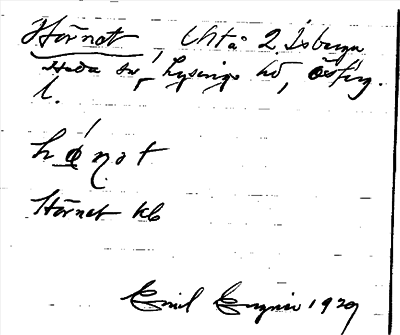 Hörnet, Uhta 2 Isberga
Heda sn, Lysings hd, Östfrg.
l.
hǿṇət
Hörnet kb
Emil 1929